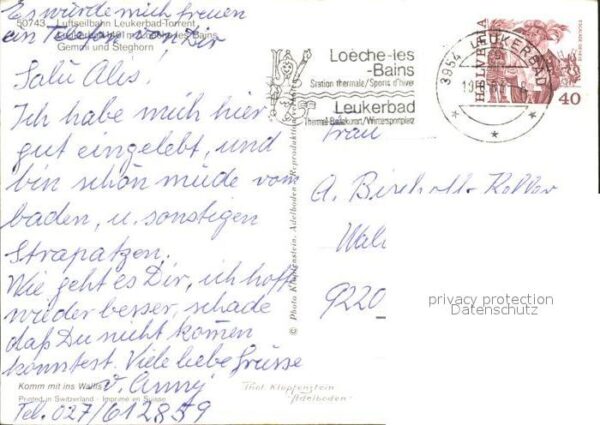 Es würde mich freuen
ein Telefon von Dir
50743 Luftseilbahn Leukerbad-Torrent
Gemmi und Steghorn
Salü Alis!
Ich habe mich hier
gut eingelebt, und
bin schön müde vom
baden, u. sonstigen
Strapatzen.
Wie geht es Dir, ich hoffe
wieder besser, schade
daß Du nicht komen
konntest. Viele liebe Grüsse
v. Anny
Komm mit ins Wallis
Printed in Switzerland - Imprimé en Suisse
Tel. 027/612859
© Photo Klopfenstein, Adelboden
Reproduktion
Thöl. Klopfenstein
"Adelboden"
Loèche-les
-Bains
Station thermale/Sports d'hiver
Leukerbad
Thermal-Badekurort/Wintersportplatz
3954 LEUKERBAD
HELVETIA
40
Frau
A. Bischof-Keller
9220
privacy protection
Datenschutz